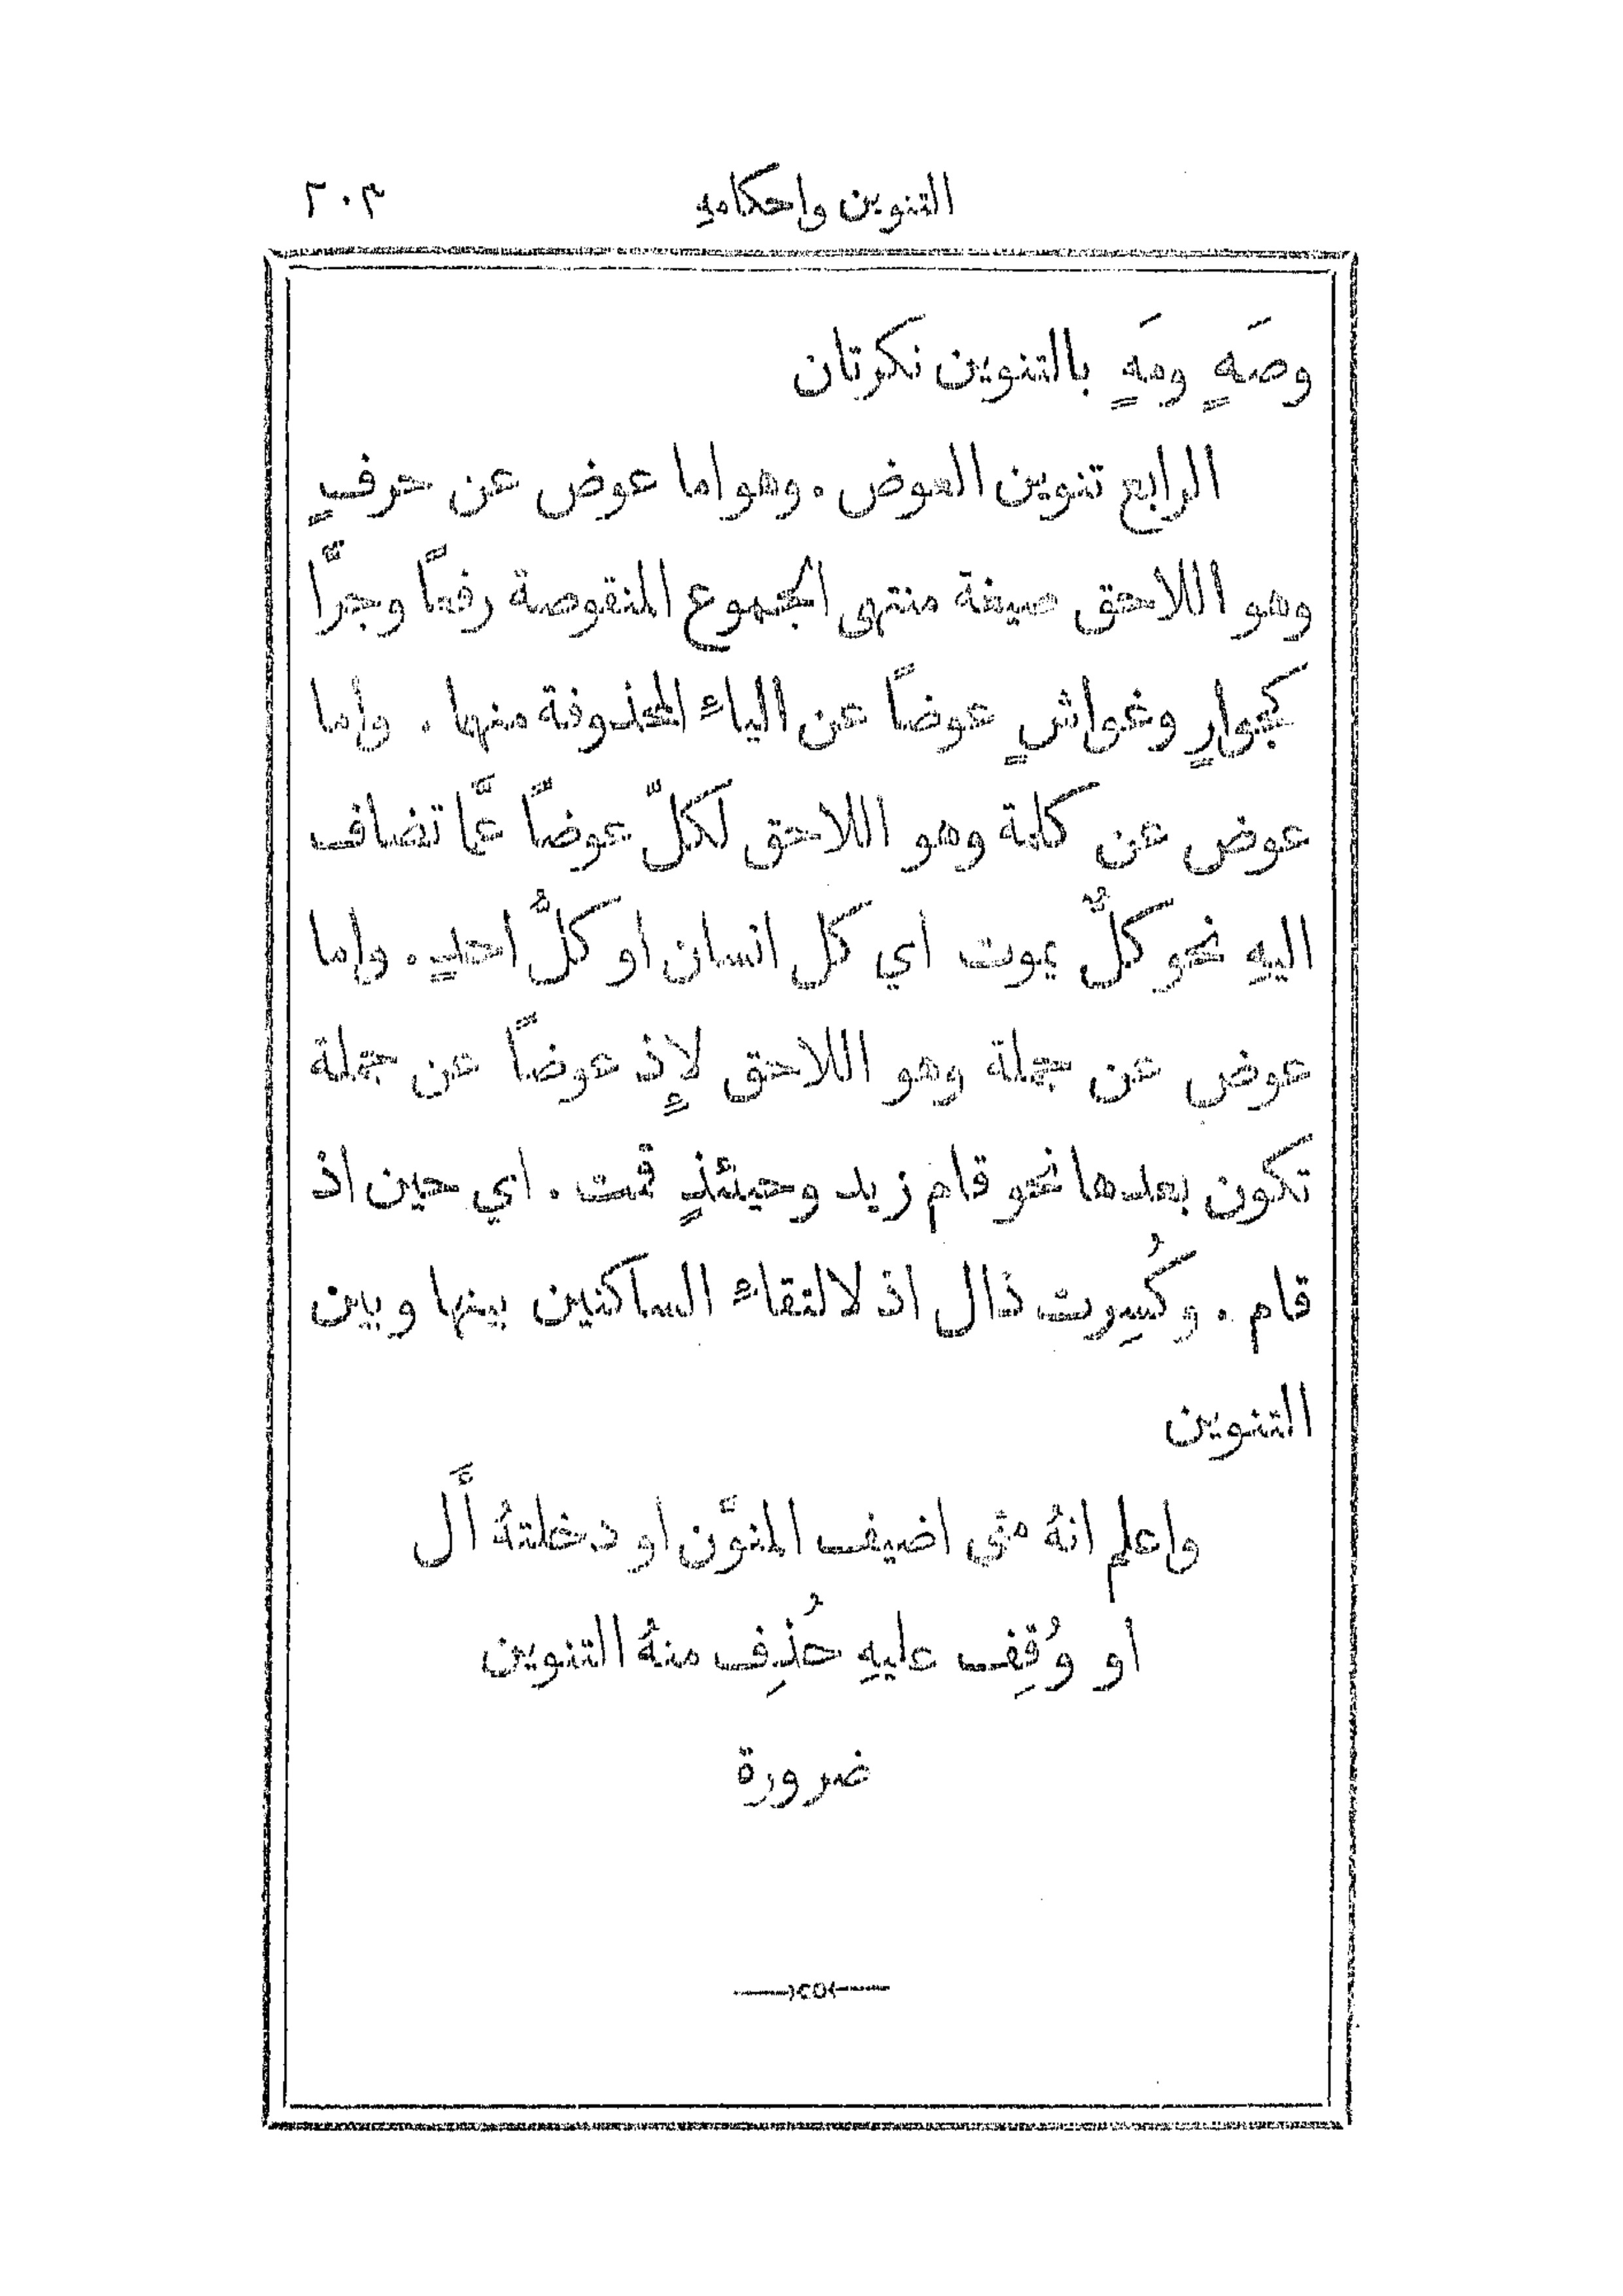 التنوين واحكامهِ ٢٠٣
وصَهٍ ومَهٍ بالتنوين نكرتان
الرابع تنوين العوض. وهو اما عوض عن حرفٍ
وهو اللاحق صيغة منتهى الجموع المنقوصة رفعًا وجرًّا
كجوارٍ وغواشٍ عوضًا عن الياء المحذوفة منها. واما
عوض عن كلمة وهو اللاحق لكلّ عوضًا عمَّا تضاف
اليهِ نحو كلٌّ يموت اي كل انسان او كلُّ احدٍ. واما
عوض عن جملة وهو اللاحق لإِذٍ عوضًا عن جملة
تكون بعدها نحو قام زيد وحينئذٍ قمت. اي حين اذ
قام. وكُسِرت ذال اذ لالتقاء الساكنين بينها وبين
التنوين
واعلم انهُ متى اضيف المنوَّن او دخلتهُ أَل
او وُقِف عليهِ حُذِف منهُ التنوين
ضرورة